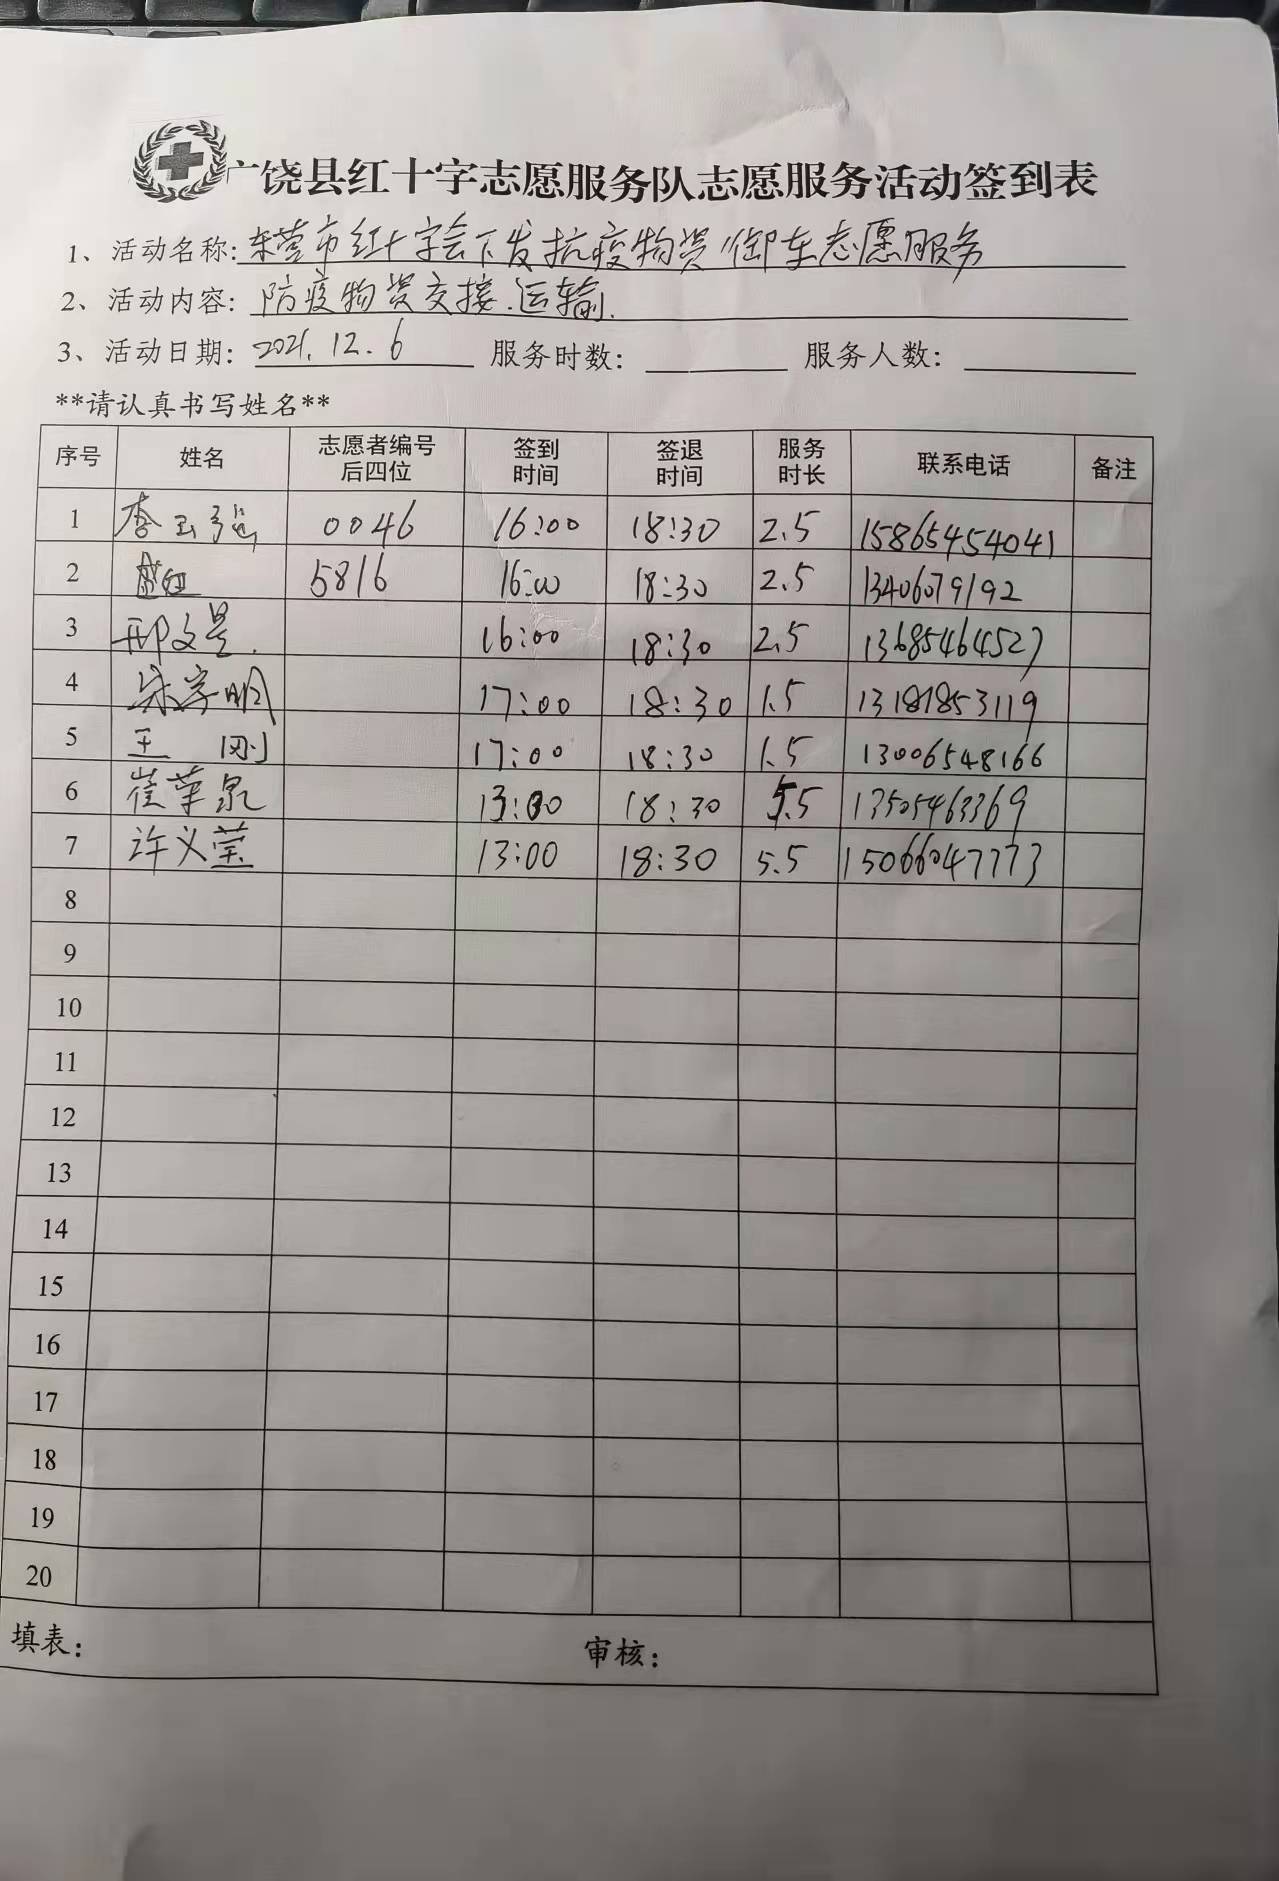 广饶县红十字志愿服务队志愿服务活动签到表
1、活动名称:东营市红十字会下发抗疫物资卸车志愿服务
2、活动内容:防疫物资交接.运输.
3、活动日期:2021.12.6 服务时数: 服务人数:
**请认真书写姓名**
序号 姓名 志愿者编号后四位 签到时间 签退时间 服务时长 联系电话 备注
1 李玉强 0046 16:00 18:30 2.5 15865454041
2 5816 16:00 18:30 2.5 13406079192
3 邢文景. 16:00 18:30 2.5 13685464527
4 宋学明 17:00 18:30 1.5 13181853119
5 王刚 17:00 18:30 1.5 13006548166
6 崔苹泉 13:00 18:30 5.5 13505463369
7 许义莹 13:00 18:30 5.5 15066047773
8
9
10
11
12
13
14
15
16
17
18
19
20
填表: 审核: